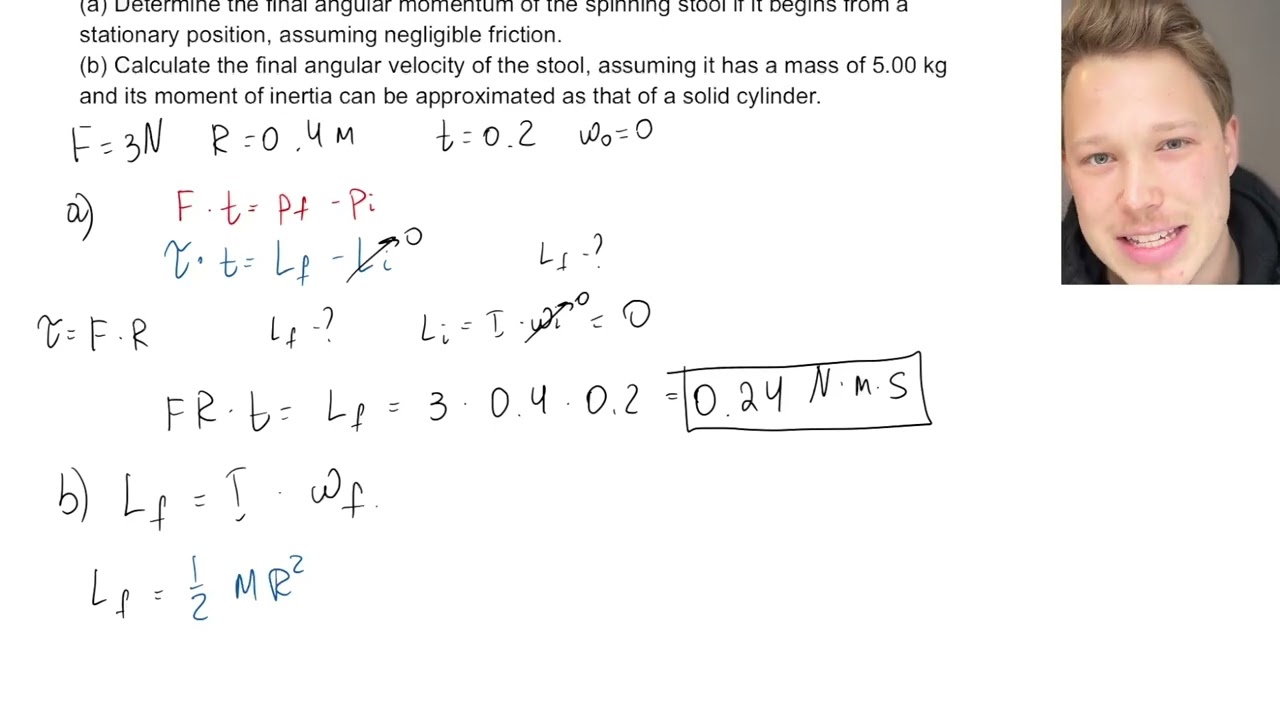 (a) Determine the final angular momentum of the spinning stool if it begins from a
stationary position, assuming negligible friction.
(b) Calculate the final angular velocity of the stool, assuming it has a mass of 5.00 kg
and its moment of inertia can be approximated as that of a solid cylinder.
F = 3N R = 0.4 M t = 0.2 ω₀ = 0
a) F · t = Pf - Pi
τ · t = Lf - Li 0 Lf - ?
τ = F · R Lf - ? Li = I · ωi 0 = 0
FR · t = Lf = 3 · 0.4 · 0.2 = 0.24 N·m·S
b) Lf = I · ωf.
Lf = 1/2 MR²